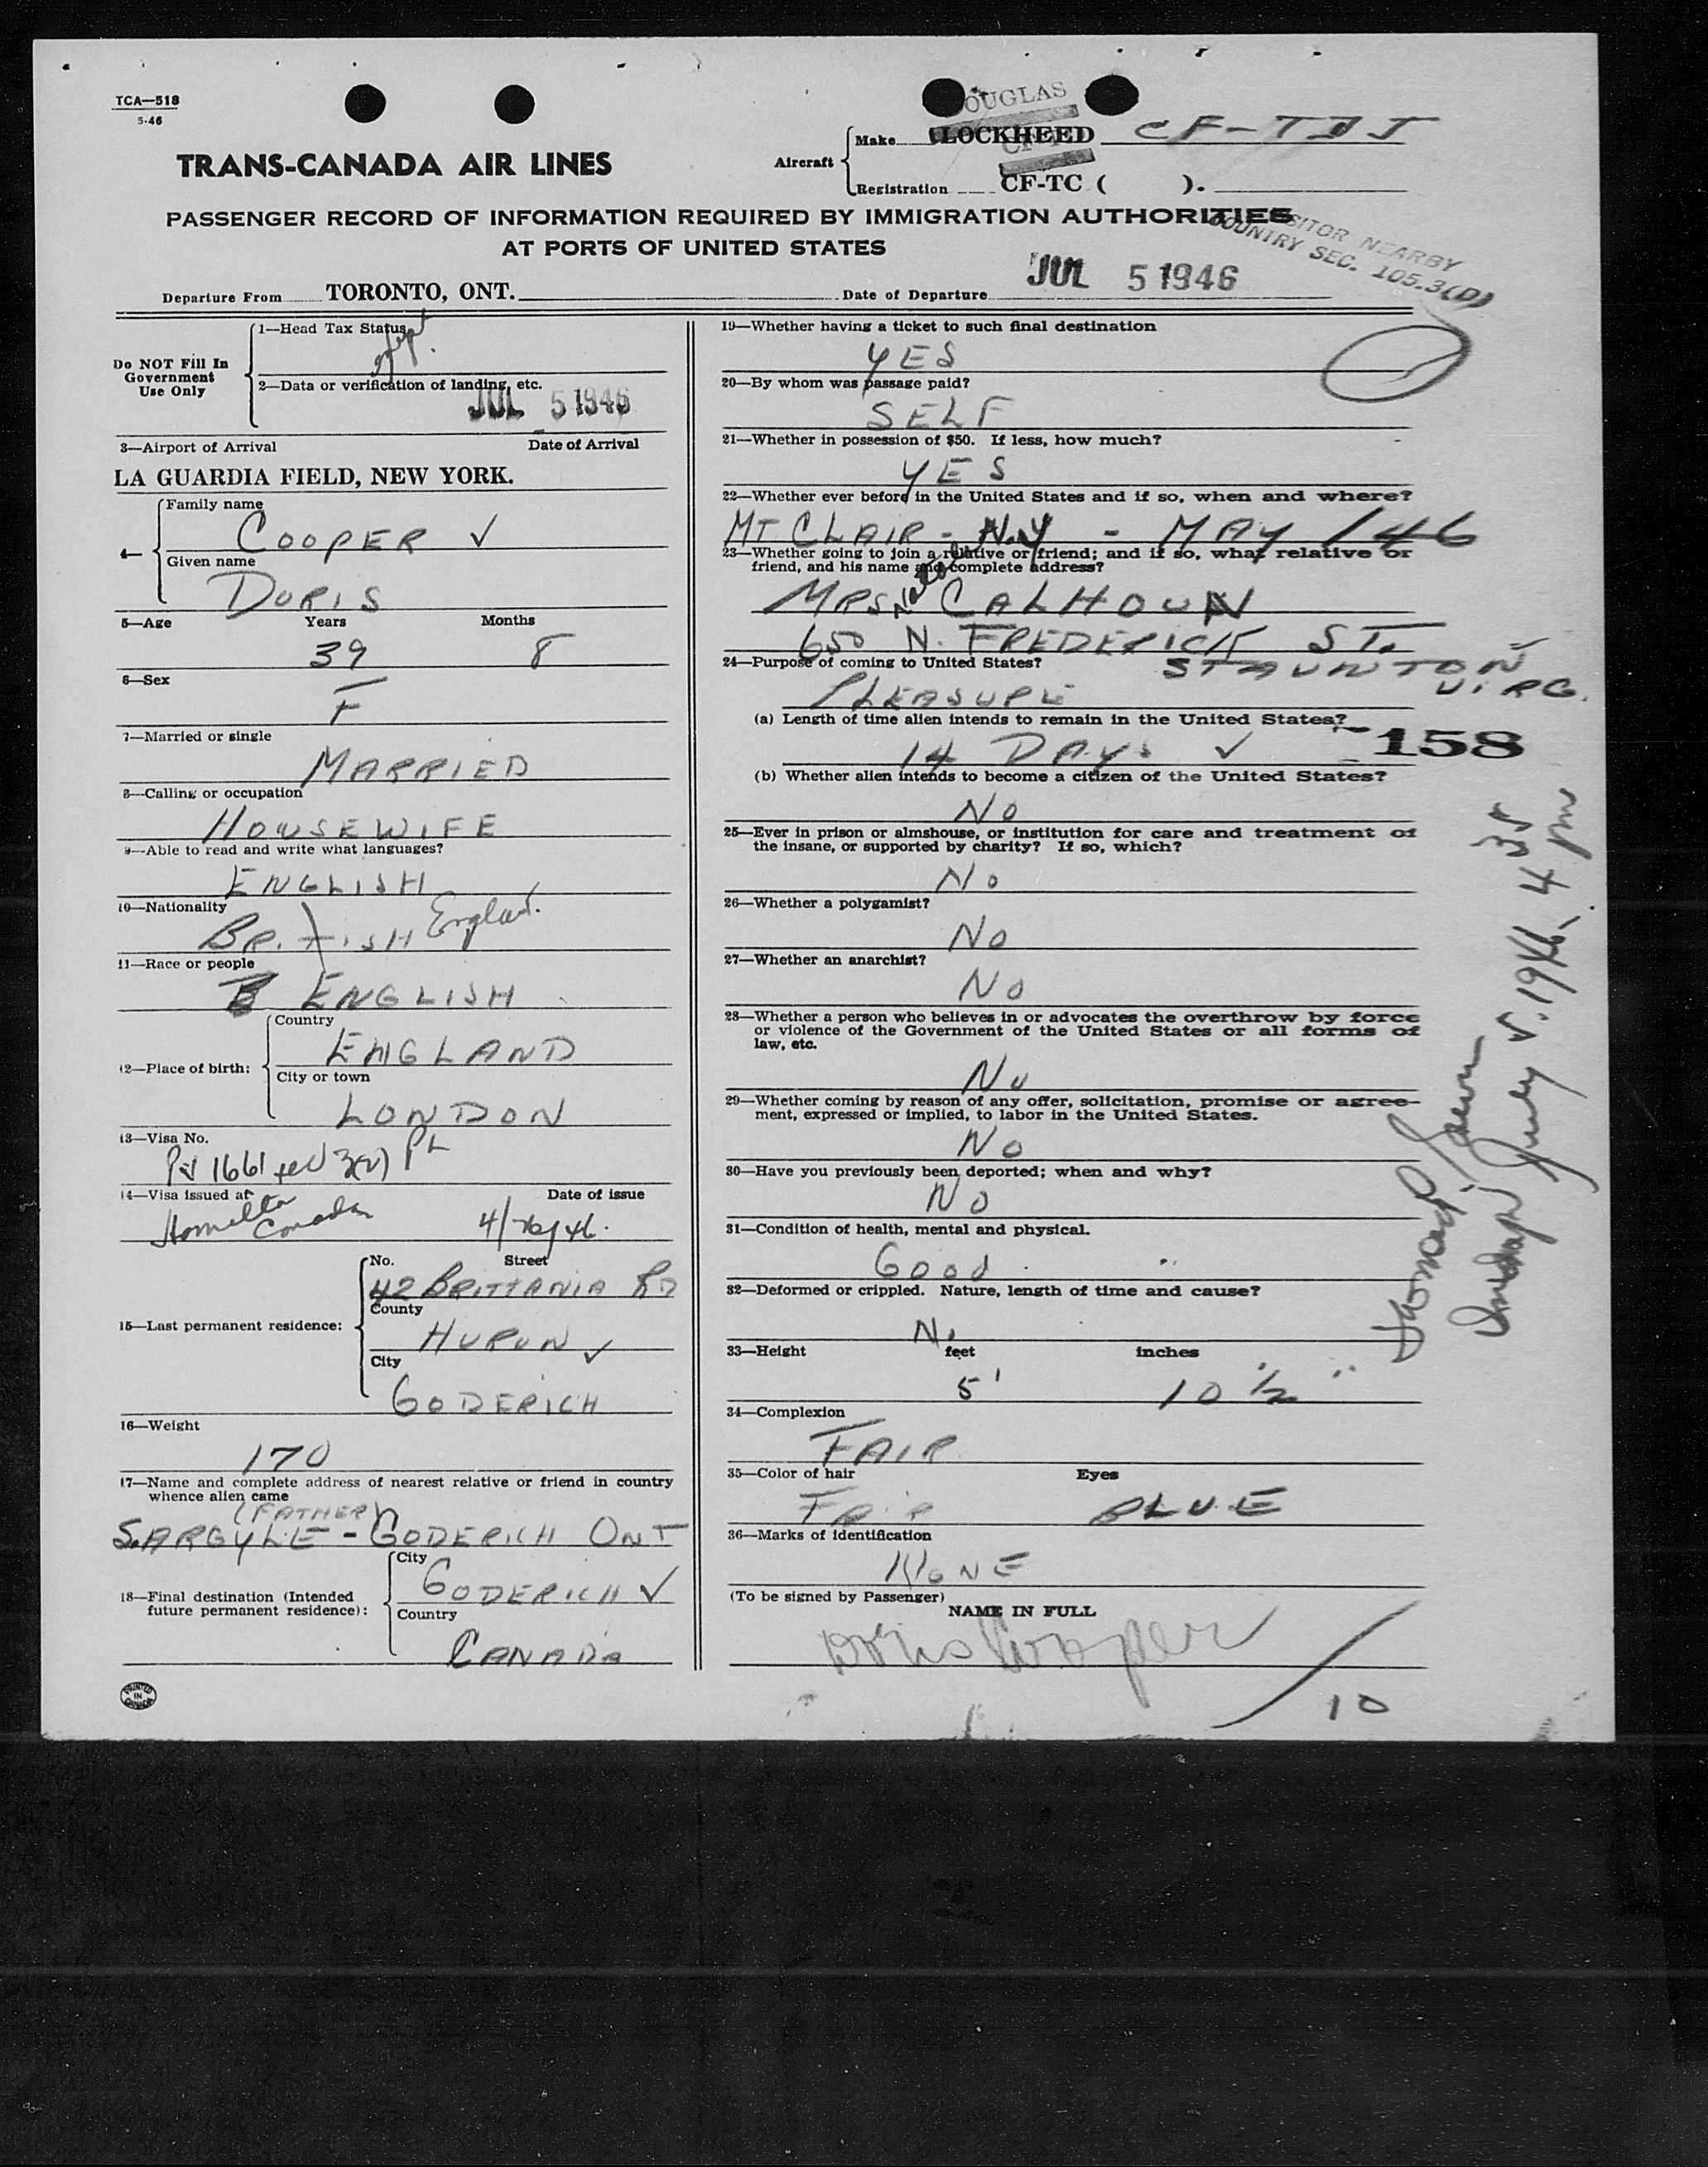 TCA—518
5-46
TRANS-CANADA AIR LINES
Aircraft
Make
DOUGLAS
LOCKHEED CF-TDJ
Registration CF-TC ( ).
PASSENGER RECORD OF INFORMATION REQUIRED BY IMMIGRATION AUTHORITIES
AT PORTS OF UNITED STATES
VISITOR NEARBY
COUNTRY SEC. 105.3(D)
Departure From TORONTO, ONT. Date of Departure JUL 5 1946
Do NOT Fill In
Government
Use Only
1—Head Tax Status
2—Data or verification of landing, etc.
JUL 5 1946
3—Airport of Arrival Date of Arrival
LA GUARDIA FIELD, NEW YORK.
4—
Family name
COOPER ✓
Given name
DORIS
5—Age Years Months
39 8
6—Sex
F
7—Married or single
MARRIED
8—Calling or occupation
HOUSEWIFE
9—Able to read and write what languages?
ENGLISH
10—Nationality
BRITISH England.
11—Race or people
ENGLISH
12—Place of birth:
Country
ENGLAND
City or town
LONDON
13—Visa No.
PV 1661 sec 3(2) PL
14—Visa issued at Date of issue
Hamilton
Canada 4/26/46.
15—Last permanent residence:
No. Street
42 BRITTANIA RD
County
HURON ✓
City
GODERICH
16—Weight
170
17—Name and complete address of nearest relative or friend in country
whence alien came
(FATHER)
S. ARGYLE - GODERICH ONT
18—Final destination (Intended
future permanent residence):
City
GODERICH ✓
Country
CANADA
PRINTED
IN
CANADA
19—Whether having a ticket to such final destination
YES
20—By whom was passage paid?
SELF
21—Whether in possession of $50. If less, how much?
YES
22—Whether ever before in the United States and if so, when and where?
MT CLAIR - N.Y - MAY /46
23—Whether going to join a relative or friend; and if so, what relative or
friend, and his name and complete address?
MRS CALHOUN
650 N. FREDERICK ST.
STAUNTON
VIRG.
24—Purpose of coming to United States?
PLEASURE
(a) Length of time alien intends to remain in the United States?
14 DAYS ✓
158
(b) Whether alien intends to become a citizen of the United States?
NO
25—Ever in prison or almshouse, or institution for care and treatment of
the insane, or supported by charity? If so, which?
NO
26—Whether a polygamist?
NO
27—Whether an anarchist?
NO
28—Whether a person who believes in or advocates the overthrow by force
or violence of the Government of the United States or all forms of
law, etc.
NO
29—Whether coming by reason of any offer, solicitation, promise or agree-
ment, expressed or implied, to labor in the United States.
NO
30—Have you previously been deported; when and why?
NO
31—Condition of health, mental and physical.
GOOD
32—Deformed or crippled. Nature, length of time and cause?
NO
33—Height feet inches
5' 10 ½ "
34—Complexion
FAIR
35—Color of hair Eyes
FAIR BLUE
36—Marks of identification
NONE
(To be signed by Passenger)
NAME IN FULL
Doris Cooper
10
July 5, 1946, 4 35 pm